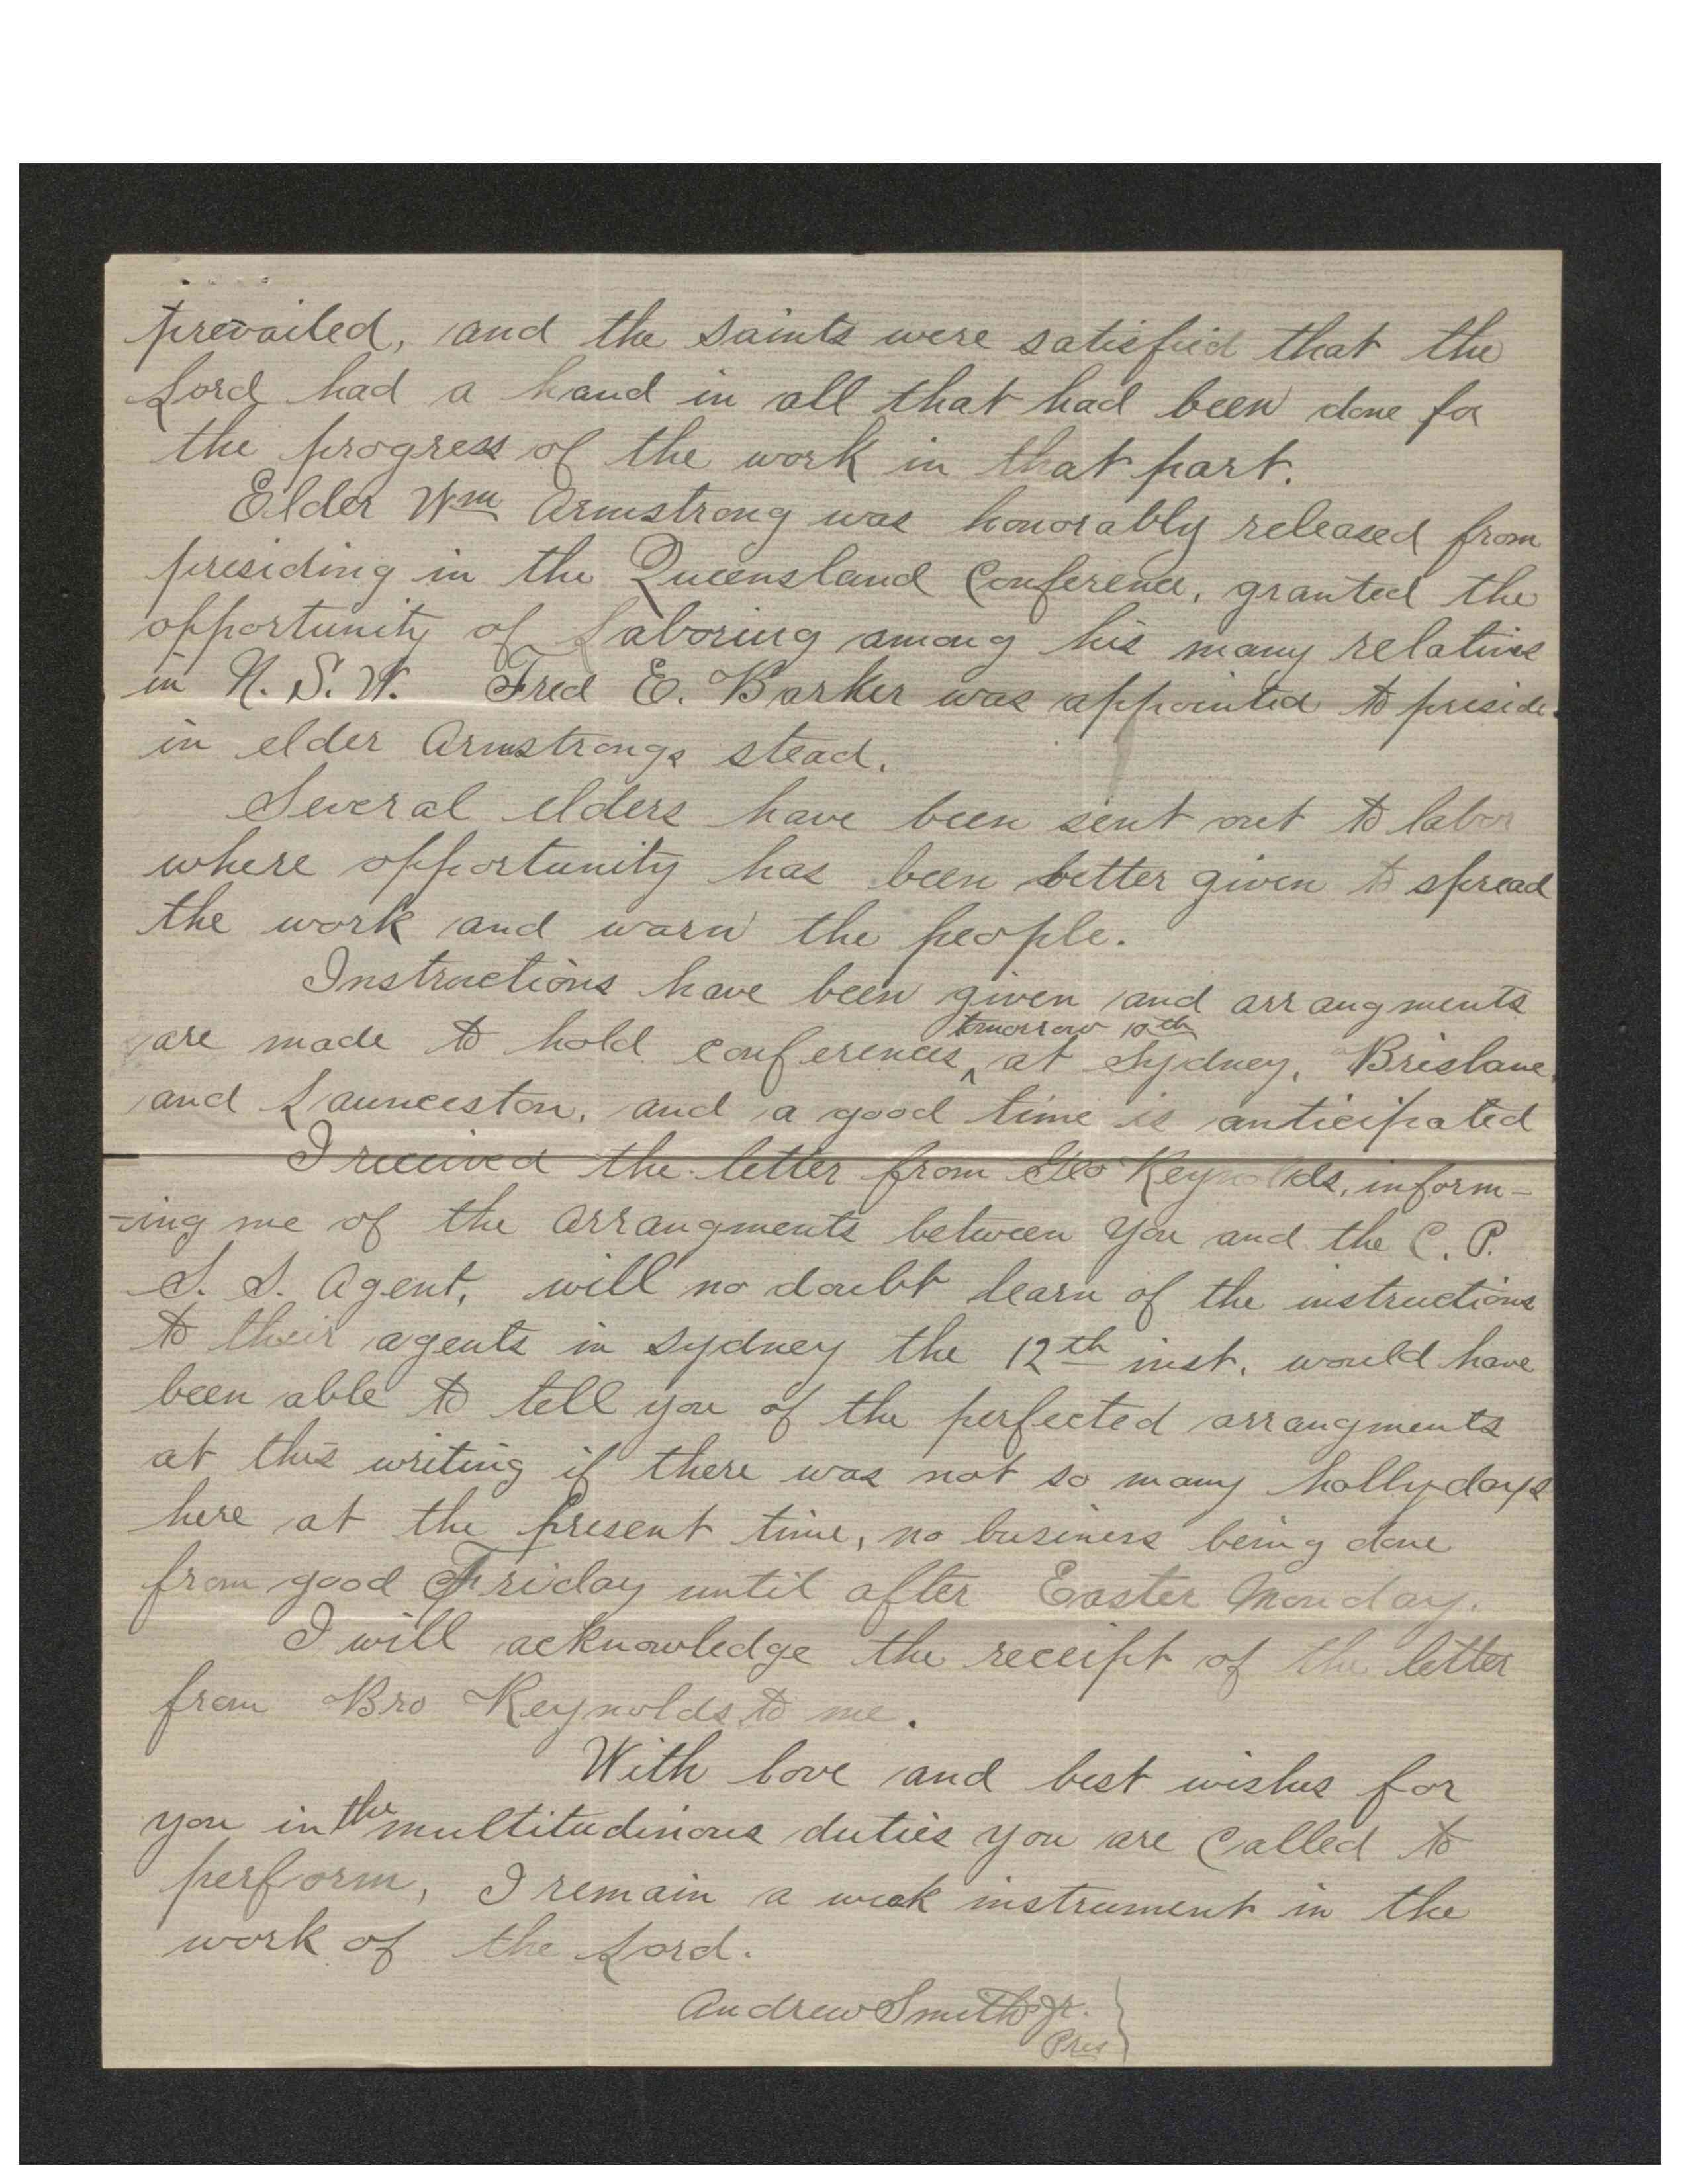 prevailed, and the saints were satisfied that the
Lord had a hand in all that had been done for
the progress of the work in that part.
Elder Wm Armstrong was honorably released from
presiding in the Queensland Conference, granted the
opportunity of Laboring among his many relatives
in N. S. W. Fred E. Barker was appointed to preside
in elder Armstrongs stead.
Several elders have been sent out to labor
where opportunity has been better given to spread
the work and warn the people.
Instructions have been given and arrangments
tomorrow 10th
are made to hold conferences ^ at Sydney, Brisbane,
and Launceston, and a good time is anticipated
I received the letter from Geo Reynolds, inform-
-ing me of the arrangments between you and the C. P.
S. S. Agent, will no doubt learn of the instructions
to their agents in Sydney the 12th inst. would have
been able to tell you of the perfected arrangments
at this writing if there was not so many hollydays
here at the present time, no business being done
from good Friday until after Easter Monday.
I will acknowledge the receipt of the letter
from Bro Reynolds to me.
With love and best wishes for
you in the multitudinous duties you are Called to
perform, I remain a weak instrument in the
work of the Lord.
Andrew Smith Jr.
Pres